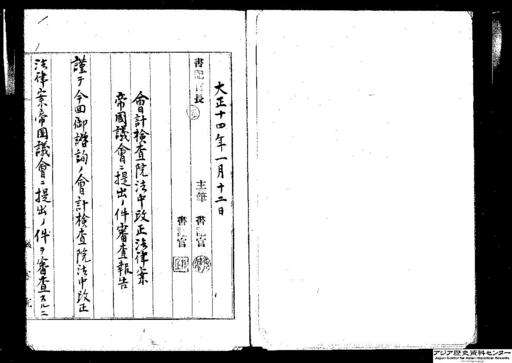 大正十四年一月十二日
書記官長
主筆 書記官
書記官
會計檢査院法中改正法律案
帝國議會ニ提出ノ件審査報告
謹テ今回御諮詢ノ會計檢査院法中改正
法律案帝國議會ニ提出ノ件ヲ審査スルニ
アジア歴史資料センター
Japan Center for Asian Historical Records